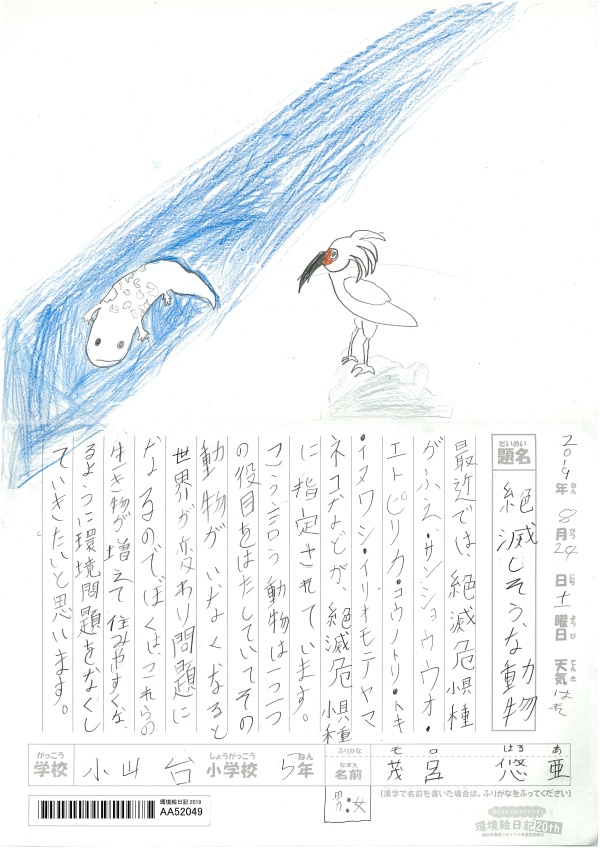 2019年 8月 24日 土曜日 天気 はれ
ねん がつ にち ようび てんき
だいめい
題名 絶滅しそうな動物
最近では、絶滅危惧種
がふえ、サンショウウオ・
エトピリカ・コウノトリ・トキ
・イヌワシ・イリオモテヤマ
ネコなどが、絶滅危惧種
に指定されています。
こう言う動物は一つ一つ
の役目をはたしていてその
動物がいなくなると
世界が変わり問題に
なるのでぼくはこれらの
生き物が増えて住みやすくな
るように環境問題をなくし
ていきたいと思います。
がっこう しょうがっこう ねん ふりがな モロ はるあ
学校 小山台 小学校 5年 なまえ 名前 茂呂 悠亜
男・女
(漢字で名前を書いた場合は、ふりがなをふってください)
環境絵日記 2019
AA52049
環境絵日記 20th